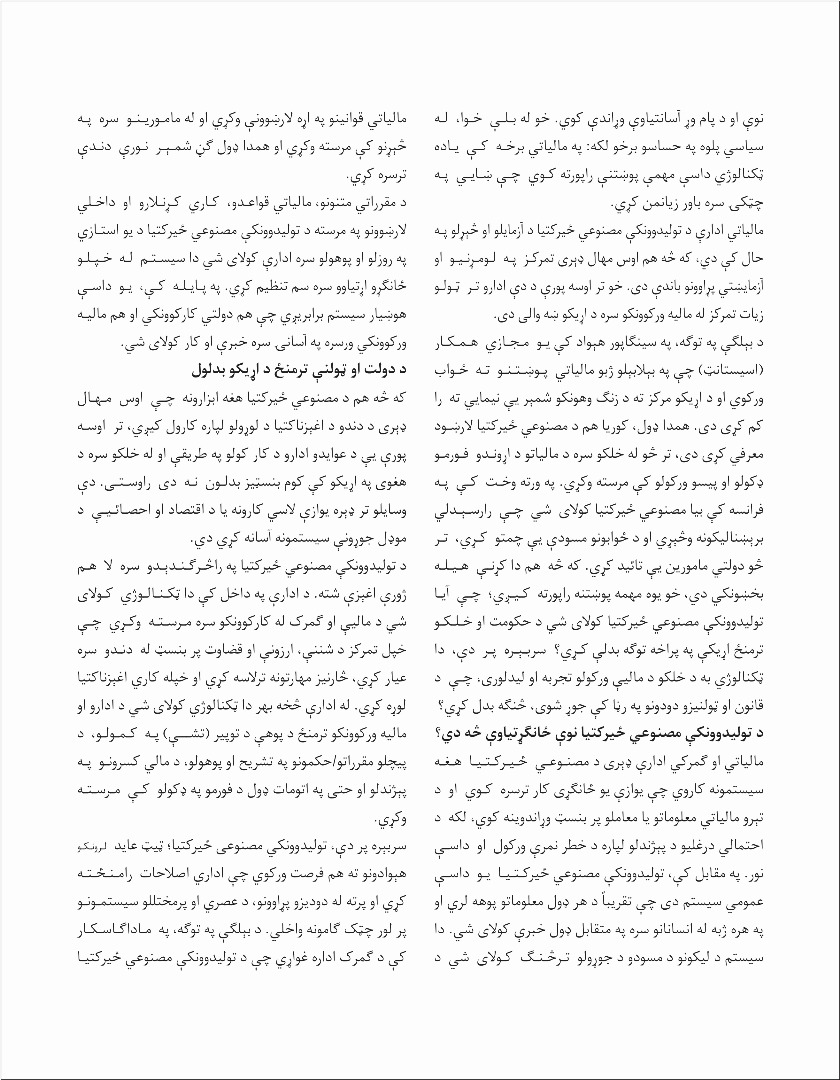 نوې او د پام وړ آسانتياوې وړاندې کوي. خو له بلې خوا، له
سياسي پلوه په حساسو برخو لکه: په مالياتي برخه کې ياده
ټکنالوژي داسې مهمې پوښتنې راپورته کوي چې ښايي په
چټکۍ سره باور زيانمن کړي.
مالياتي ادارې د توليدوونکې مصنوعي ځيرکتيا د آزمايلو او څېړلو په
حال کې دي، که څه هم اوس مهال ډېرى تمرکز په لومړنيو او
آزمايښتي پړاوونو باندې دى. خو تر اوسه پورې د دې ادارو تر ټولو
زيات تمرکز له ماليه ورکوونکو سره د اړيکو ښه والى دى.
د بېلګې په توګه، په سينګاپور هېواد کې يو مجازي همکار
(اسيستانټ) چې په بېلابېلو ژبو مالياتي پوښتنو ته ځواب
ورکوي او د اړيکو مرکز ته د زنګ وهونکو شمېر يې نيمايي ته را
کم کړى دى. همدا ډول، کوريا هم د مصنوعي ځيرکتيا لارښود
معرفي کړى دى، تر څو له خلکو سره د مالياتو د اړوندو فورمو
ډکولو او پيسو ورکولو کې مرسته وکړي. په ورته وخت کې په
فرانسه کې بيا مصنوعي ځيرکتيا کولاى شي چې رارسېدلي
برېښناليکونه وڅېړي او د ځوابونو مسودې يې چمتو کړي، تر
څو دولتي مامورين يې تائيد کړي. که څه هم دا کړنې هيله
بخښونکي دي، خو يوه مهمه پوښتنه راپورته کيږي؛ چې آيا
توليدوونکې مصنوعي ځيرکتيا کولاى شي د حکومت او خلکو
ترمنځ اړيکې په پراخه توګه بدلې کړي؟ سربېره پر دې، دا
ټکنالوژي به د خلکو د ماليې ورکولو تجربه او ليدلورى، چې د
قانون او ټولنيزو دودونو په رڼا کې جوړ شوى، څنګه بدل کړي؟
د توليدوونکې مصنوعي ځيرکتيا نوې ځانګړتياوې څه دي؟
مالياتي او ګمرکي ادارې ډېرى د مصنوعي ځيرکتيا هغه
سيستمونه کاروي چې يوازې يو ځانګړى کار ترسره کوي او د
تېرو مالياتي معلوماتو يا معاملو پر بنسټ وړاندوينه کوي، لکه د
احتمالي درغليو د پېژندلو لپاره د خطر نمرې ورکول او داسې
نور. په مقابل کې، توليدوونکې مصنوعي ځيرکتيا يو داسې
عمومي سيستم دى چې تقريباً د هر ډول معلوماتو پوهه لري او
په هره ژبه له انسانانو سره په متقابل ډول خبرې کولاى شي. دا
سيستم د ليکونو د مسودو د جوړولو ترڅنګ کولاى شي د
مالياتي قوانينو په اړه لارښوونې وکړي او له مامورينو سره په
څېړنو کې مرسته وکړي او همدا ډول ګڼ شمېر نورې دندې
ترسره کړي.
د مقرراتي متنونو، مالياتي قواعدو، کاري کړنلارو او داخلي
لارښوونو په مرسته د توليدوونکې مصنوعي ځيرکتيا د يو استازي
په روزلو او پوهولو سره ادارې کولاى شي دا سيستم له خپلو
ځانګړو اړتياوو سره سم تنظيم کړي. په پايله کې، يو داسې
هوښيار سيستم برابريږي چې هم دولتي کارکوونکي او هم ماليه
ورکوونکي ورسره په آسانۍ سره خبرې او کار کولاى شي.
د دولت او ټولنې ترمنځ د اړيکو بدلول
که څه هم د مصنوعي ځيرکتيا هغه ابزارونه چې اوس مهال
ډېرى د دندو د اغېزناکتيا د لوړولو لپاره کارول کيږي، تر اوسه
پورې يې د عوايدو ادارو د کار کولو په طريقې او له خلکو سره د
هغوى په اړيکو کې کوم بنسټيز بدلون نه دى راوستى. دې
وسايلو تر ډېره يوازې لاسي کارونه يا د اقتصاد او احصائيې د
موډل جوړونې سيستمونه آسانه کړي دي.
د توليدوونکې مصنوعي ځيرکتيا په راڅرګندېدو سره لا هم
ژورې اغېزې شته. د ادارې په داخل کې دا ټکنالوژي کولاى
شي د ماليې او ګمرک له کارکوونکو سره مرسته وکړي چې
خپل تمرکز د شننې، ارزونې او قضاوت پر بنسټ له دندو سره
عيار کړي، څارنيز مهارتونه ترلاسه کړي او خپله کاري اغېزناکتيا
لوړه کړي. له ادارې څخه بهر دا ټکنالوژي کولاى شي د ادارو او
ماليه ورکوونکو ترمنځ د پوهې د توپير (تشې) په کمولو، د
پيچلو مقرراتو/حکمونو په تشريح او پوهولو، د مالي کسرونو په
پېژندلو او حتى په اتومات ډول د فورمو په ډکولو کې مرسته
وکړي.
سربېره پر دې، توليدوونکې مصنوعى ځيرکتيا؛ ټيټ عايد لرونکو
هېوادونو ته هم فرصت ورکوي چې اداري اصلاحات رامنځته
کړي او پرته له دوديزو پړاوونو، د عصري او پرمختللو سيستمونو
پر لور چټک ګامونه واخلي. د بېلګې په توګه، په ماداګاسکار
کې د ګمرک اداره غواړي چې د توليدوونکې مصنوعي ځيرکتيا